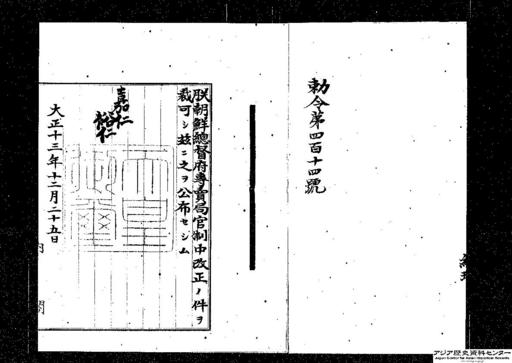 勅令第四百十四號
朕朝鮮總督府專賣局官制中改正ノ件ヲ
裁可シ玆ニ之ヲ公布セシム
嘉仁
裕仁
天皇
御璽
大正十三年十二月二十五日
内閣
アジア歴史資料センター
Japan Center for Asian Historical Records